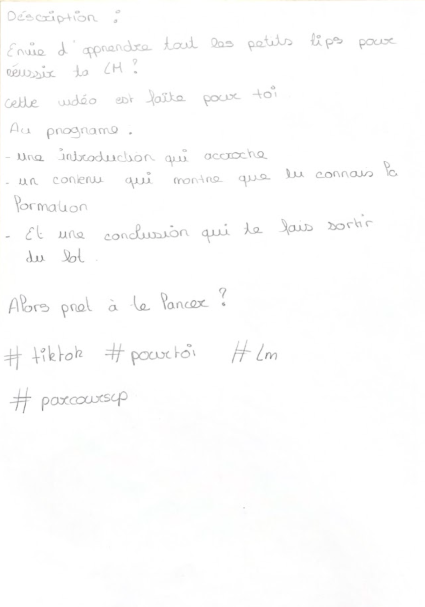 Description :
Envie d'apprendre tout les petits tips pour
réussir ta LM ?
cette vidéo est faite pour toi.
Au programe.
- une introduction qui accroche
- un contenu qui montre que tu connais la
formation
- Et une conclusion qui te fais sortir
du lot.
Alors pret à te lancer ?
# tiktok # pourtoi # Lm
# parcoursup